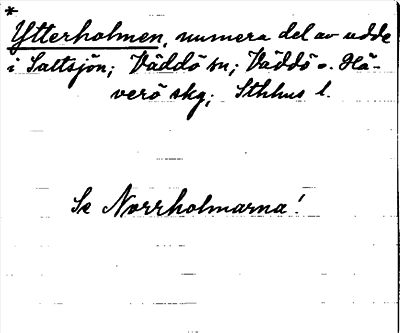 *
Ytterholmen, numera del av udde
i Saltsjön; Väddö sn; Väddö o. Hä-
verö skg; Sthlms l.
Se Norrholmarna!